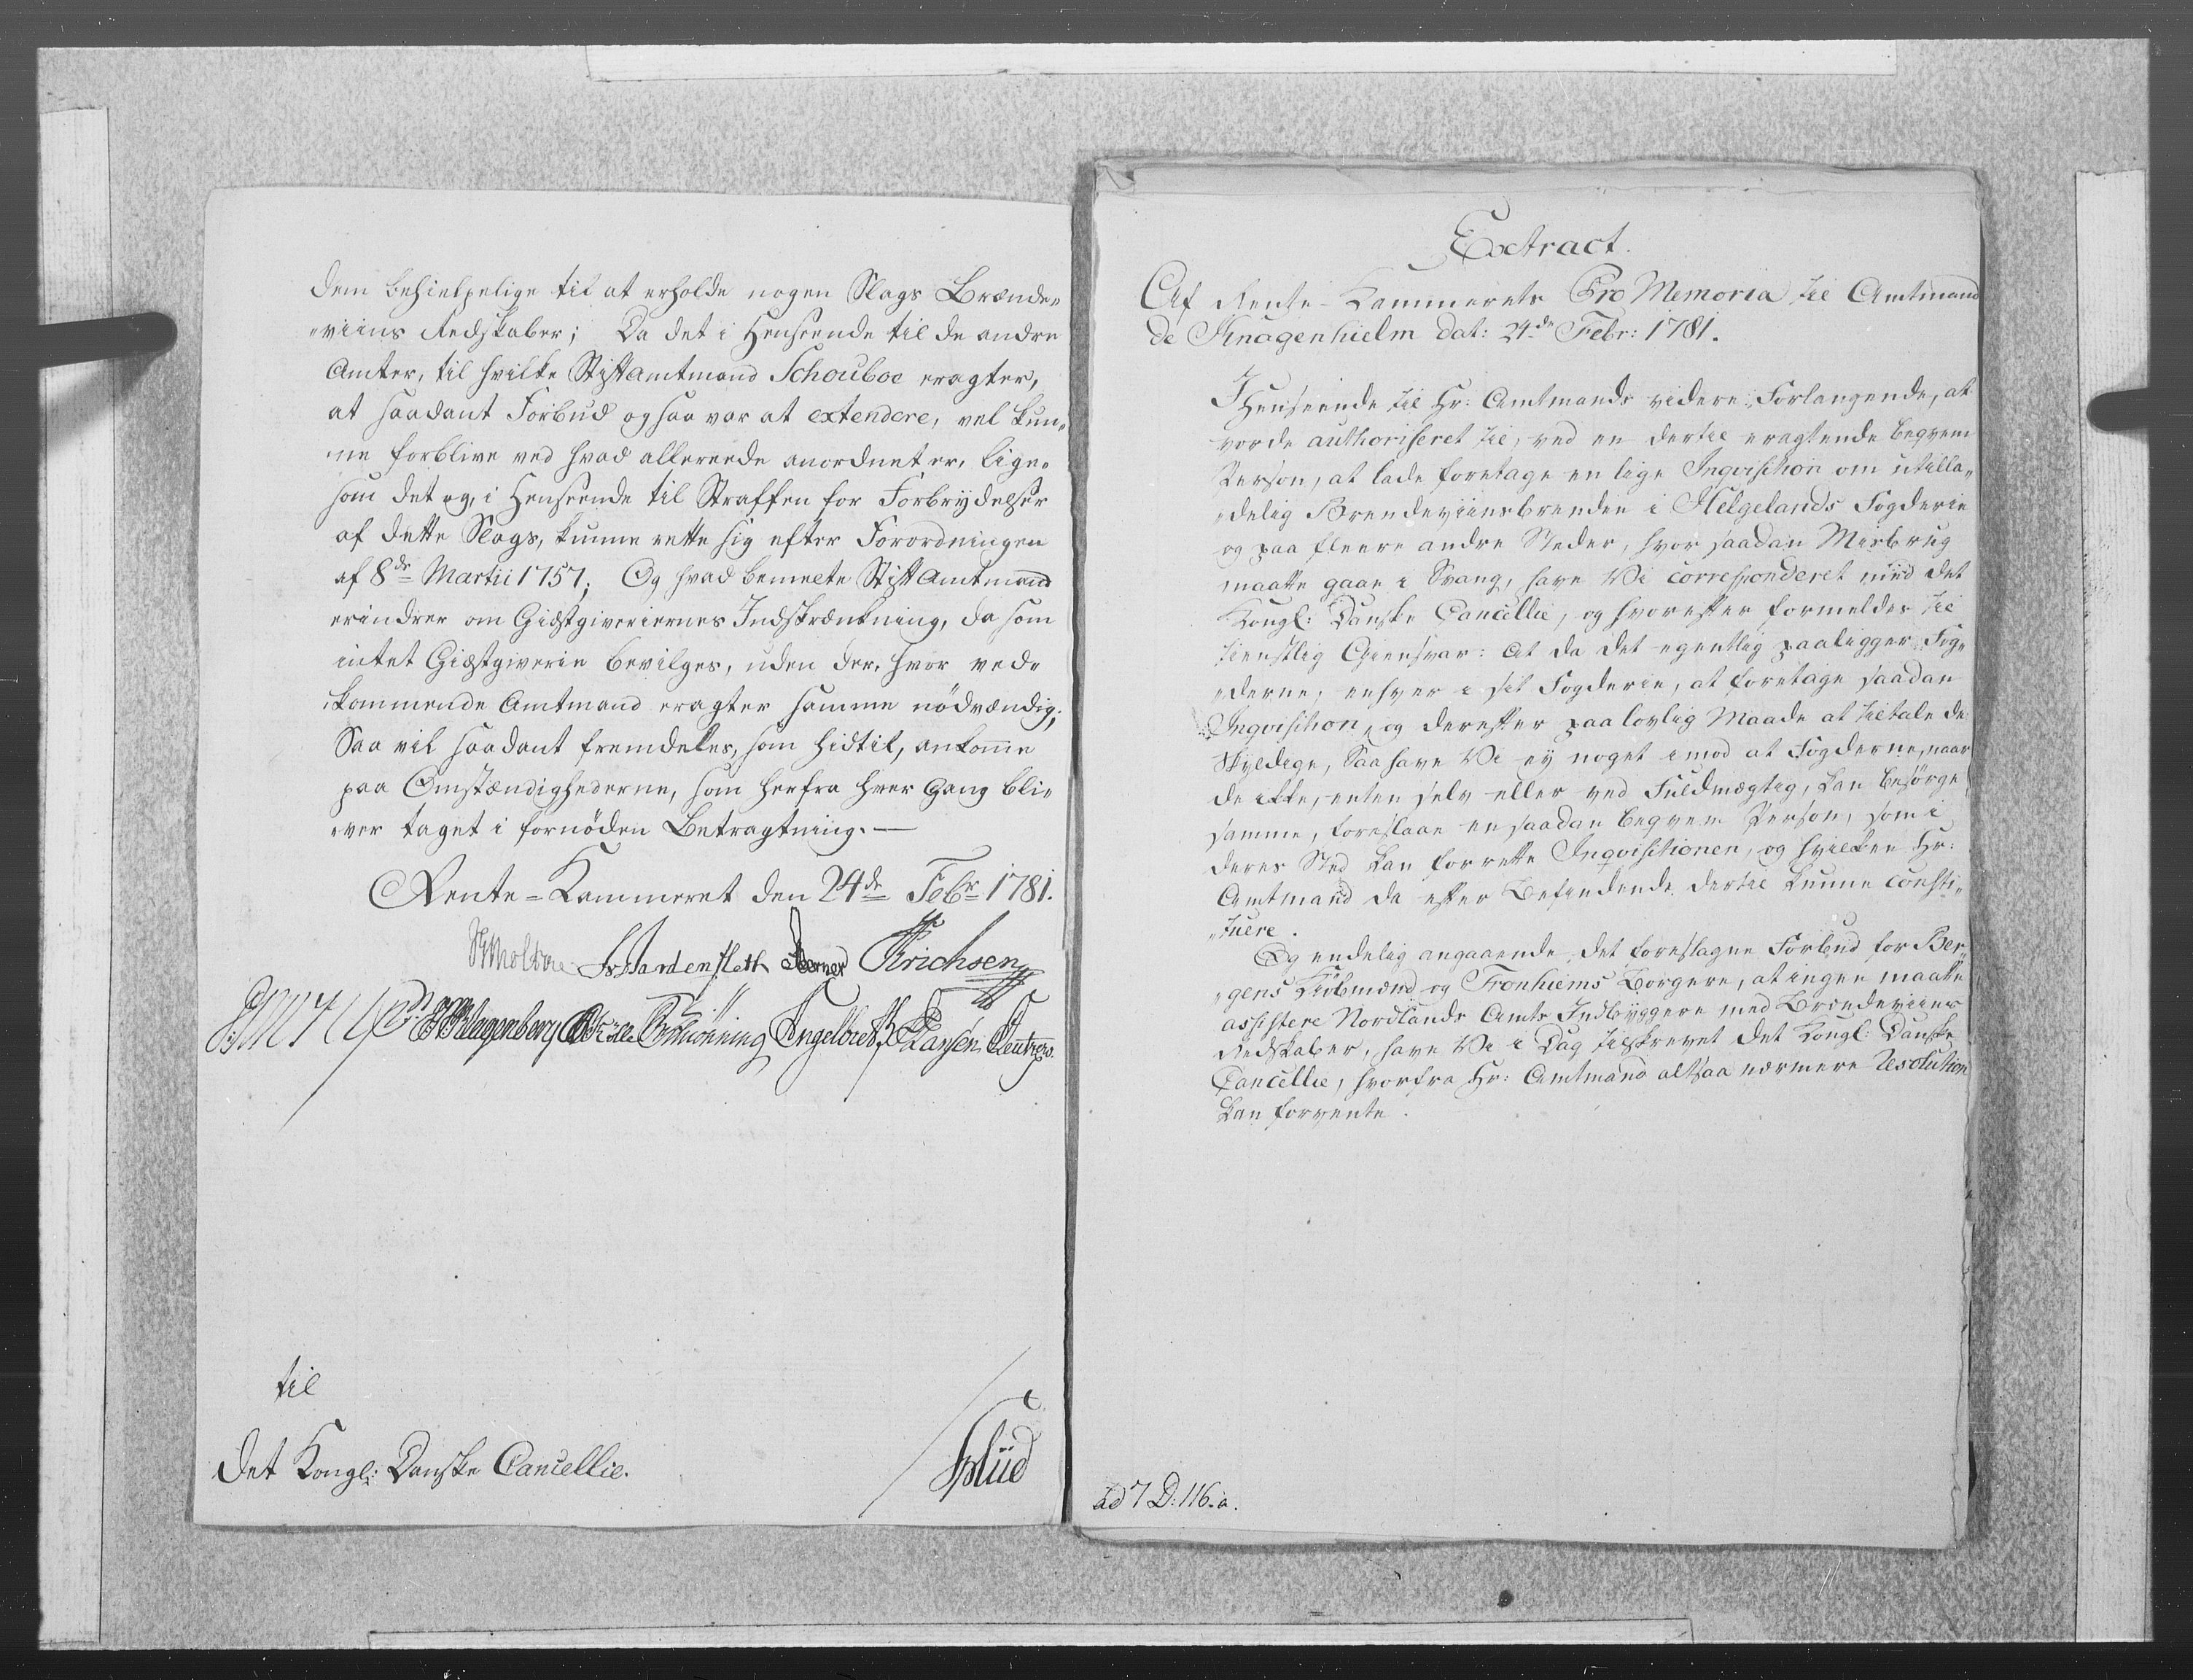 dem behielpelige til at erholde nogen Slags Brænde„
„viins Redskaber; Da det i Henseende til de andre
Amter, til hvilke Stiftamtmand Schouboe eragter,
at saadant Forbud ogsaa var at extendere, vel kun„
„ne forblive ved hvad allereede anordnet er, lige„
som det og, i Henseende til Straffen for Forbrydelser
af dette Slags, kunne rette sig efter Forordningen
af 8de Martii 1757; Og hvad bemelte Stift Amtmand
erindrer om Giæstgiveriernes Indskrænkning, da som
intet Giæstgiverie bevilges, uden der, hvor ved„
„kommende Amtmand eragter samme nödvændig;
Saa vil saadant fremdeles, som hidtil, ankomme
paa Omstændighederne, som herfra hver Gang bli„
„ver taget i fornöden Betragtning. —
Rente=Kammeret den 24de Febr 1781.
Wardenskleth Berner Erichsen
Klagenberg Schiönning Engelbreth Larssen
til
Det Kongl: Danske Cancellie.
Extract.
Af Rente-Kammerets Pro Memoria til Amtmand
de Knagenhielm dat: 24de Febr: 1781.
I Henseende til Hr: Amtmands videre Forlangende, at
vorde authoriseret til, ved en dertil eragtende beqvem
Person, at lade foretage en lige Inqvisition om utilla„
„delig Brendeviinsbrenden i Helgelands Fogderie
og paa fleere andre Steder, hvor saadan Misbrug
maatte gaae i Svang, have Vi correspondēret med det
Kongl: Danske Cancellie, og hvorefter formeldes til
tienstlig Giensvar: At da det egentlig paaligger Fog„
„derne, enhver i sit Fogderie, at foretage saadan
Inqvisition, og derefter paa lovlig Maade at tiltale de
Skyldige, Saa have Vi ey noget imod at Fogderne, naar
de ikke, enten selv eller ved Fuldmægtig, kan besørge
samme, foreslaae en saadan beqvem Person, som i
deres Sted kan forrette Inqvisitionen, og hvilken Hr:
Amtmand da efter Befindende dertil kunne consti„
„tuere.
Og endelig angaaende det foreslagne Forbud for Ber„
„gens Kiöbmænd og Tronhiems Borgere, at ingen maatte
assistere Nordlands Amts Indbyggere med Brændeviins
Redskaber, have Vi i Dag tilskrevet det Kongl: Danske
Cancellie, hvorfra Hr: Amtmand altsaa nærmere Resolution
kan forvente.
ad 7 D: 116.a.